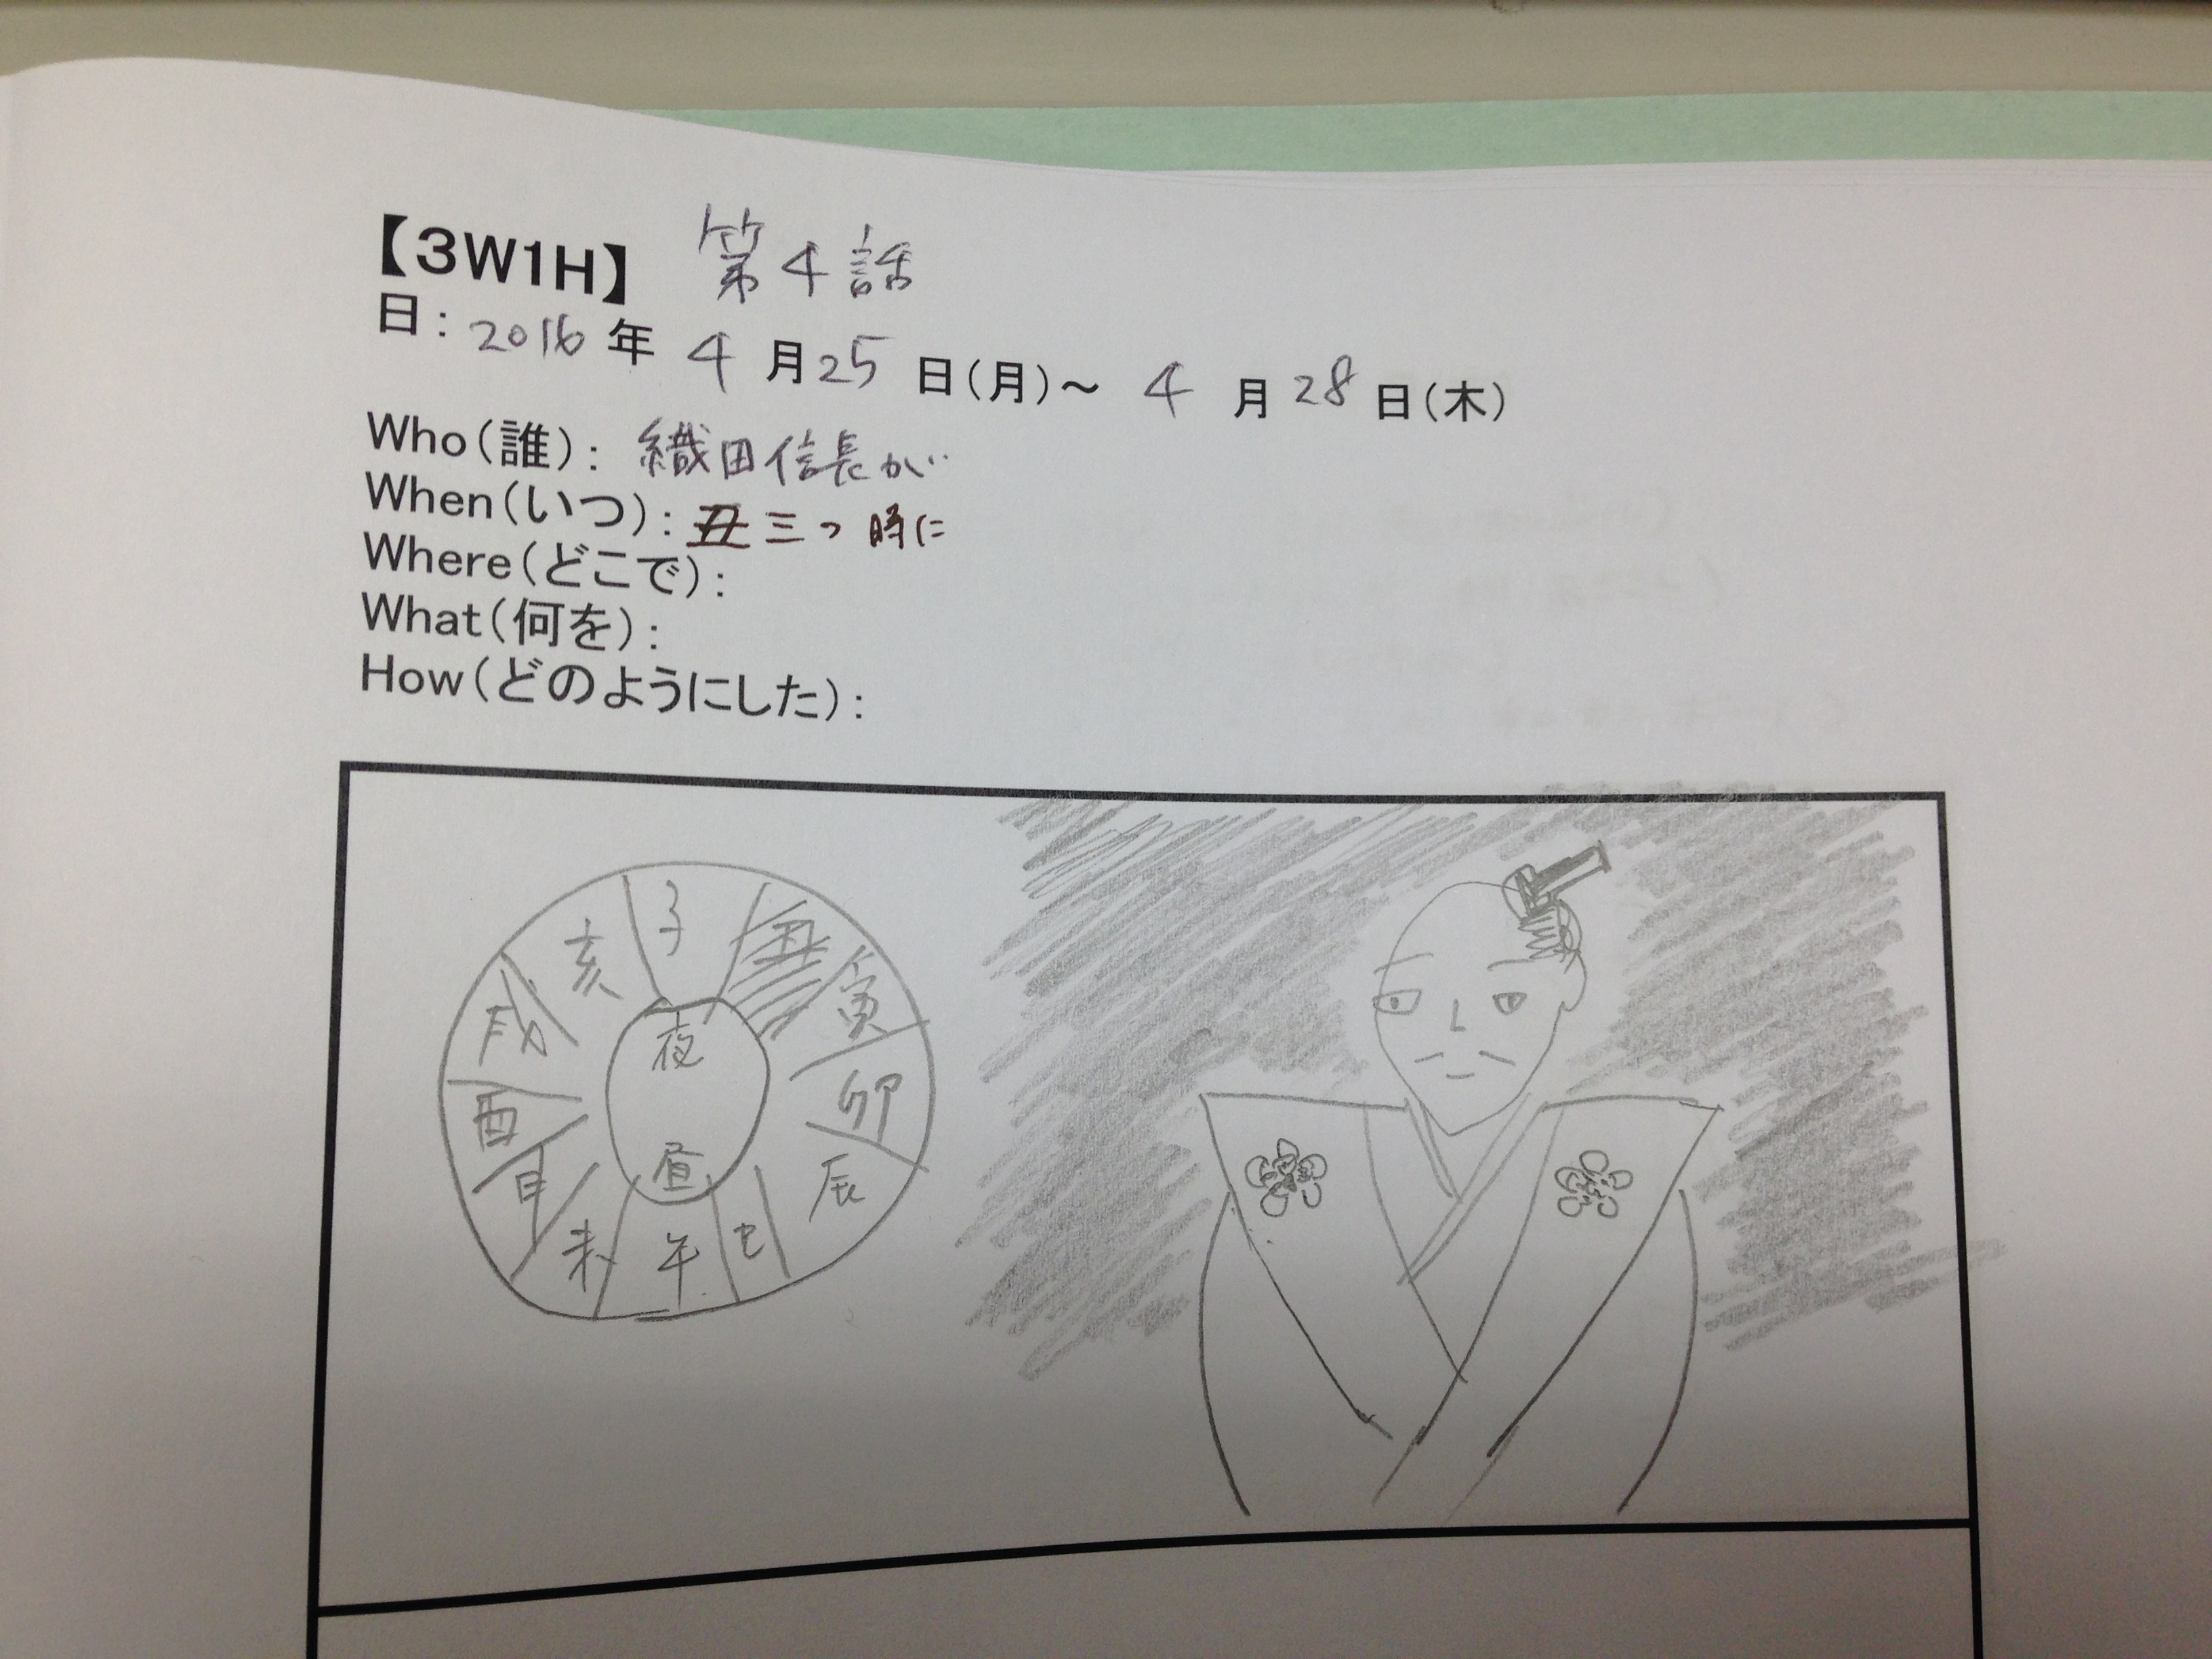 【3W1H】 第4話
日：2016年 4月25日（月）～ 4月28日（木）
Who（誰）：織田信長が
When（いつ）：丑三つ時に
Where（どこで）：
What（何を）：
How（どのようにした）：
子
丑
寅
卯
辰
巳
午
未
酉
戌
亥
夜
昼